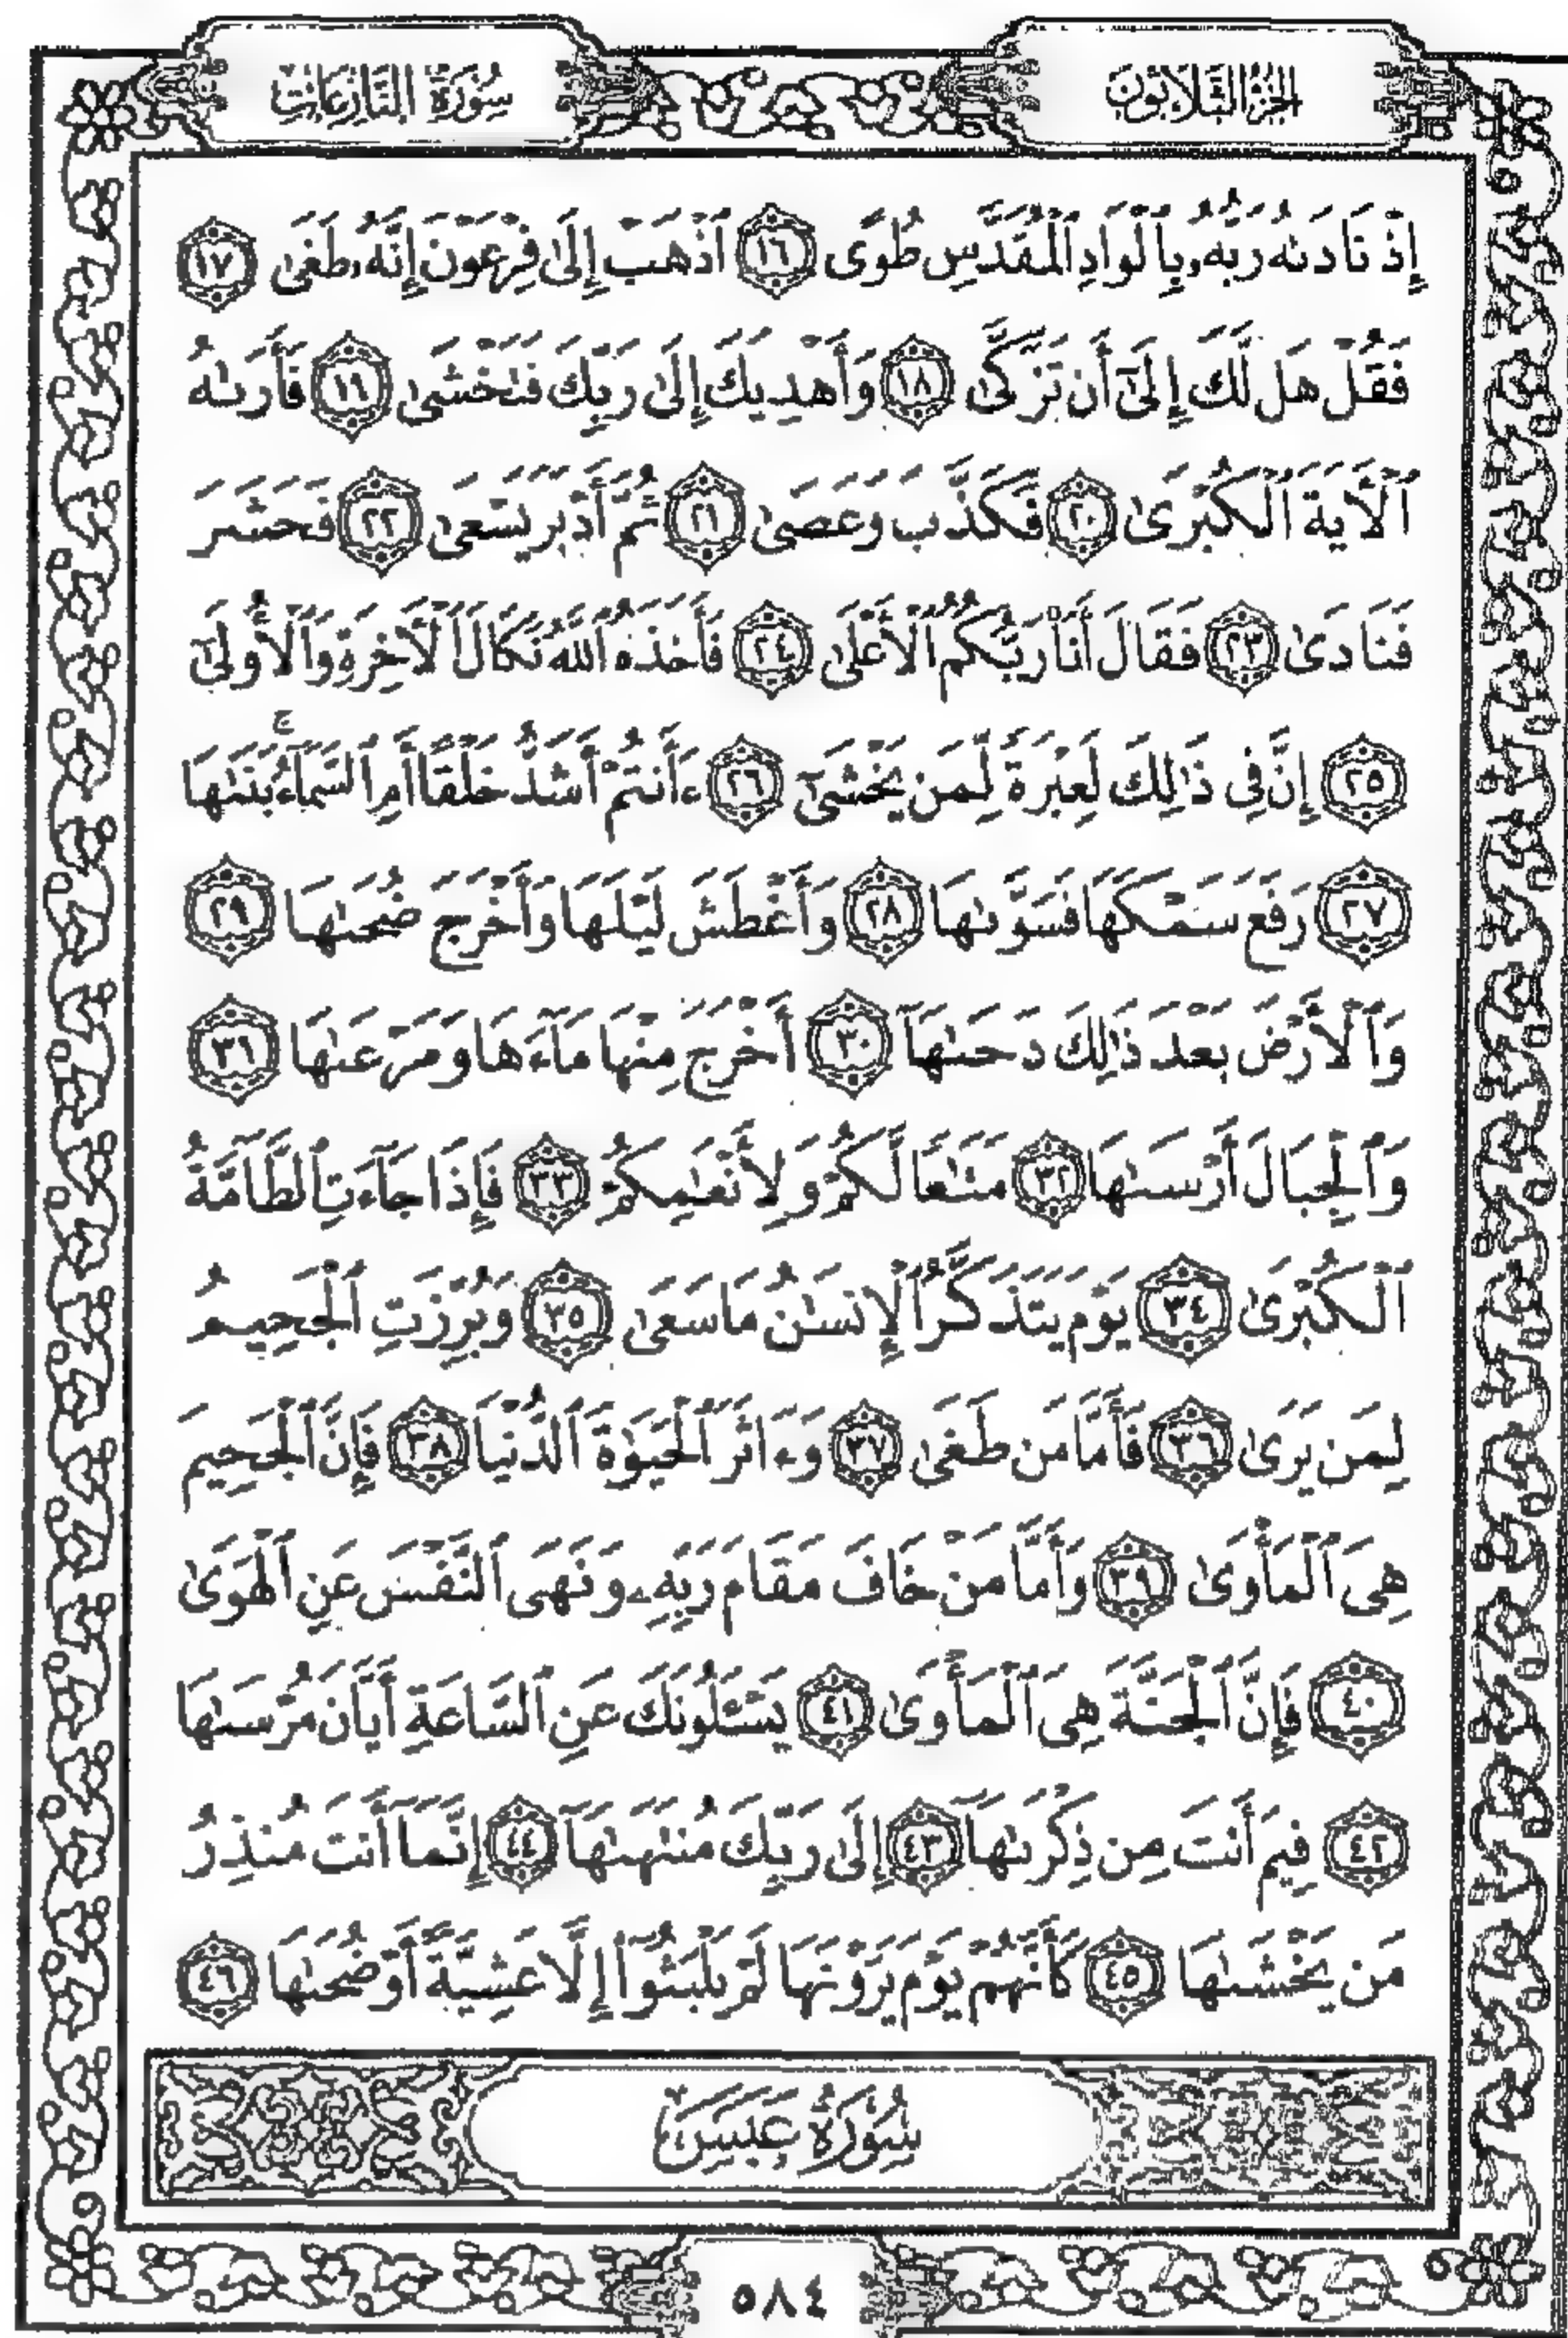 الجزء الثلاثون
سورة النازعات
إِذْ نَادَىٰهُ رَبُّهُۥ بِٱلْوَادِ ٱلْمُقَدَّسِ طُوًى ١٦ ٱذْهَبْ إِلَىٰ فِرْعَوْنَ إِنَّهُۥ طَغَىٰ ١٧
فَقُلْ هَل لَّكَ إِلَىٰٓ أَن تَزَكَّىٰ ١٨ وَأَهْدِيَكَ إِلَىٰ رَبِّكَ فَتَخْشَىٰ ١٩ فَأَرَىٰهُ
ٱلْأَيَةَ ٱلْكُبْرَىٰ ٢٠ فَكَذَّبَ وَعَصَىٰ ٢١ ثُمَّ أَدْبَرَ يَسْعَىٰ ٢٢ فَحَشَرَ
فَنَادَىٰ ٢٣ فَقَالَ أَنَا۠ رَبُّكُمُ ٱلْأَعْلَىٰ ٢٤ فَأَخَذَهُ ٱللَّهُ نَكَالَ ٱلْأَخِرَةِ وَٱلْأُولَىٰٓ
٢٥ إِنَّ فِي ذَٰلِكَ لَعِبْرَةً لِّمَن يَخْشَىٰٓ ٢٦ ءَأَنتُمْ أَشَدُّ خَلْقًا أَمِ ٱلسَّمَآءُ ۚ بَنَىٰهَا
٢٧ رَفَعَ سَمْكَهَا فَسَوَّىٰهَا ٢٨ وَأَغْطَشَ لَيْلَهَا وَأَخْرَجَ ضُحَىٰهَا ٢٩
وَٱلْأَرْضَ بَعْدَ ذَٰلِكَ دَحَىٰهَآ ٣٠ أَخْرَجَ مِنْهَا مَآءَهَا وَمَرْعَىٰهَا ٣١
وَٱلْجِبَالَ أَرْسَىٰهَا ٣٢ مَتَٰعًا لَّكُمْ وَلِأَنْعَٰمِكُمْ ٣٣ فَإِذَا جَآءَتِ ٱلطَّآمَّةُ
ٱلْكُبْرَىٰ ٣٤ يَوْمَ يَتَذَكَّرُ ٱلْإِنسَٰنُ مَا سَعَىٰ ٣٥ وَبُرِّزَتِ ٱلْجَحِيمُ
لِمَن يَرَىٰ ٣٦ فَأَمَّا مَن طَغَىٰ ٣٧ وَءَاثَرَ ٱلْحَيَوٰةَ ٱلدُّنْيَا ٣٨ فَإِنَّ ٱلْجَحِيمَ
هِىَ ٱلْمَأْوَىٰ ٣٩ وَأَمَّا مَنْ خَافَ مَقَامَ رَبِّهِۦ وَنَهَى ٱلنَّفْسَ عَنِ ٱلْهَوَىٰ
٤٠ فَإِنَّ ٱلْجَنَّةَ هِىَ ٱلْمَأْوَىٰ ٤١ يَسْـَٔلُونَكَ عَنِ ٱلسَّاعَةِ أَيَّانَ مُرْسَىٰهَا
٤٢ فِيمَ أَنتَ مِن ذِكْرَىٰهَآ ٤٣ إِلَىٰ رَبِّكَ مُنتَهَىٰهَآ ٤٤ إِنَّمَآ أَنتَ مُنذِرُ
مَن يَخْشَىٰهَا ٤٥ كَأَنَّهُمْ يَوْمَ يَرَوْنَهَا لَمْ يَلْبَثُوٓا۟ إِلَّا عَشِيَّةً أَوْ ضُحَىٰهَا ٤٦
سُورَةُ عَبَسَ
٥٨٤